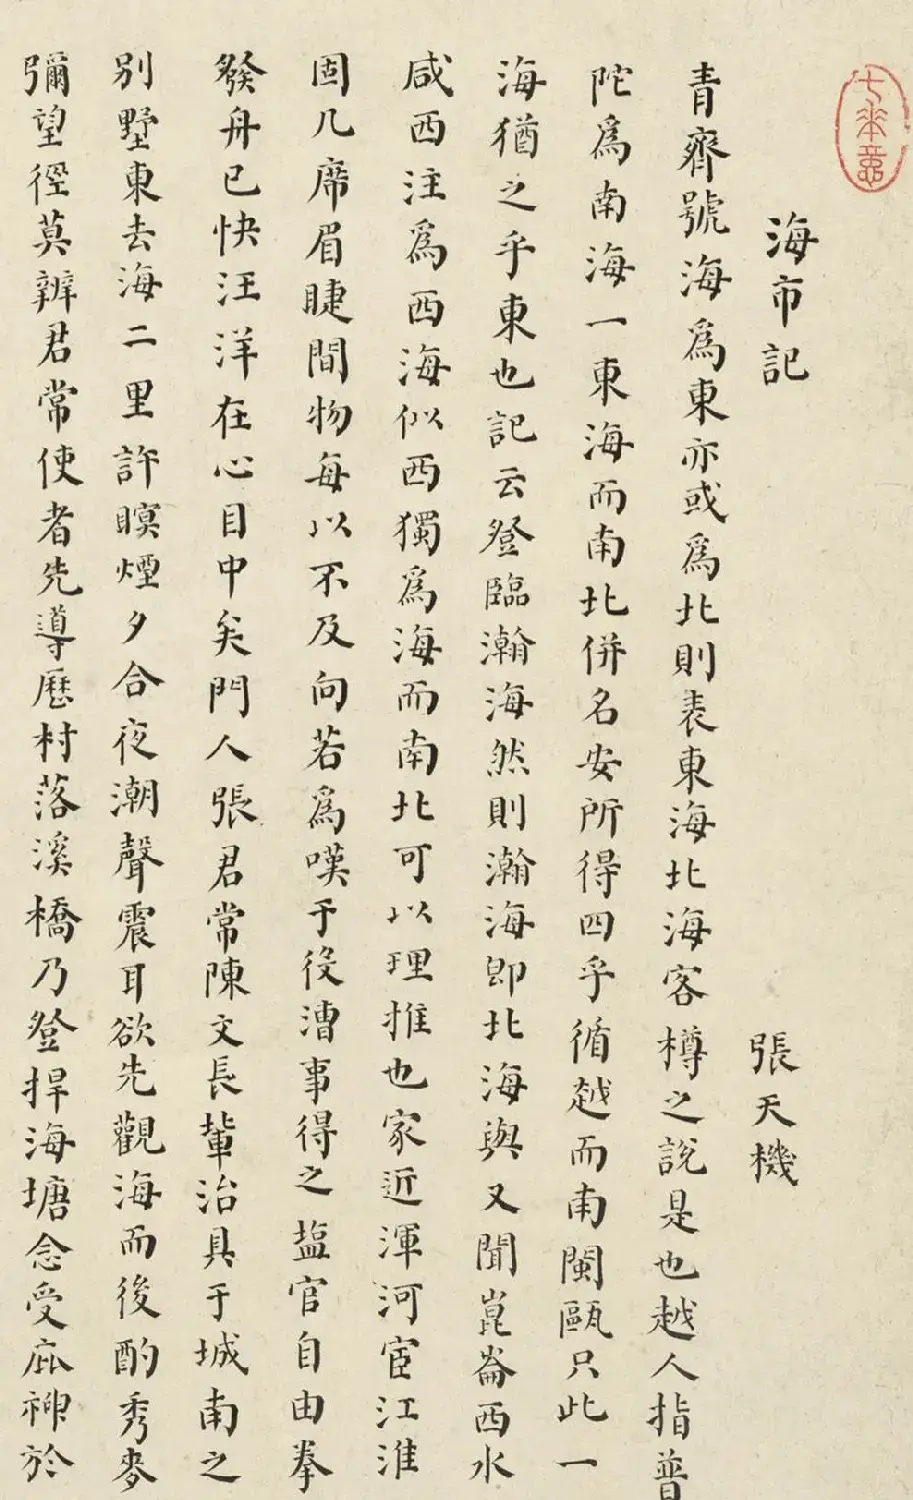 海市記
張天機
青齊號海為東亦或為北則表東海北海客樽之說是也越人指普
陀為南海一東海而南北併名安所得四乎循越而南閩甌只此一
海猶之乎東也記云登臨瀚海然則瀚海即北海與又聞崑崙西水
咸西注為西海似西獨為海而南北可以理推也家近渾河宦江淮
固几席眉睫間物每以不及向若為嘆于役漕事得之塩官自由拳
發舟已快汪洋在心目中矣門人張君常陳文長輩治具于城南之
別墅東去海二里許瞑煙夕合夜潮聲震耳欲先觀海而後酌秀麥
彌望徑莫辨君常使者先導歷村落溪橋乃登捍海塘念受庇神於